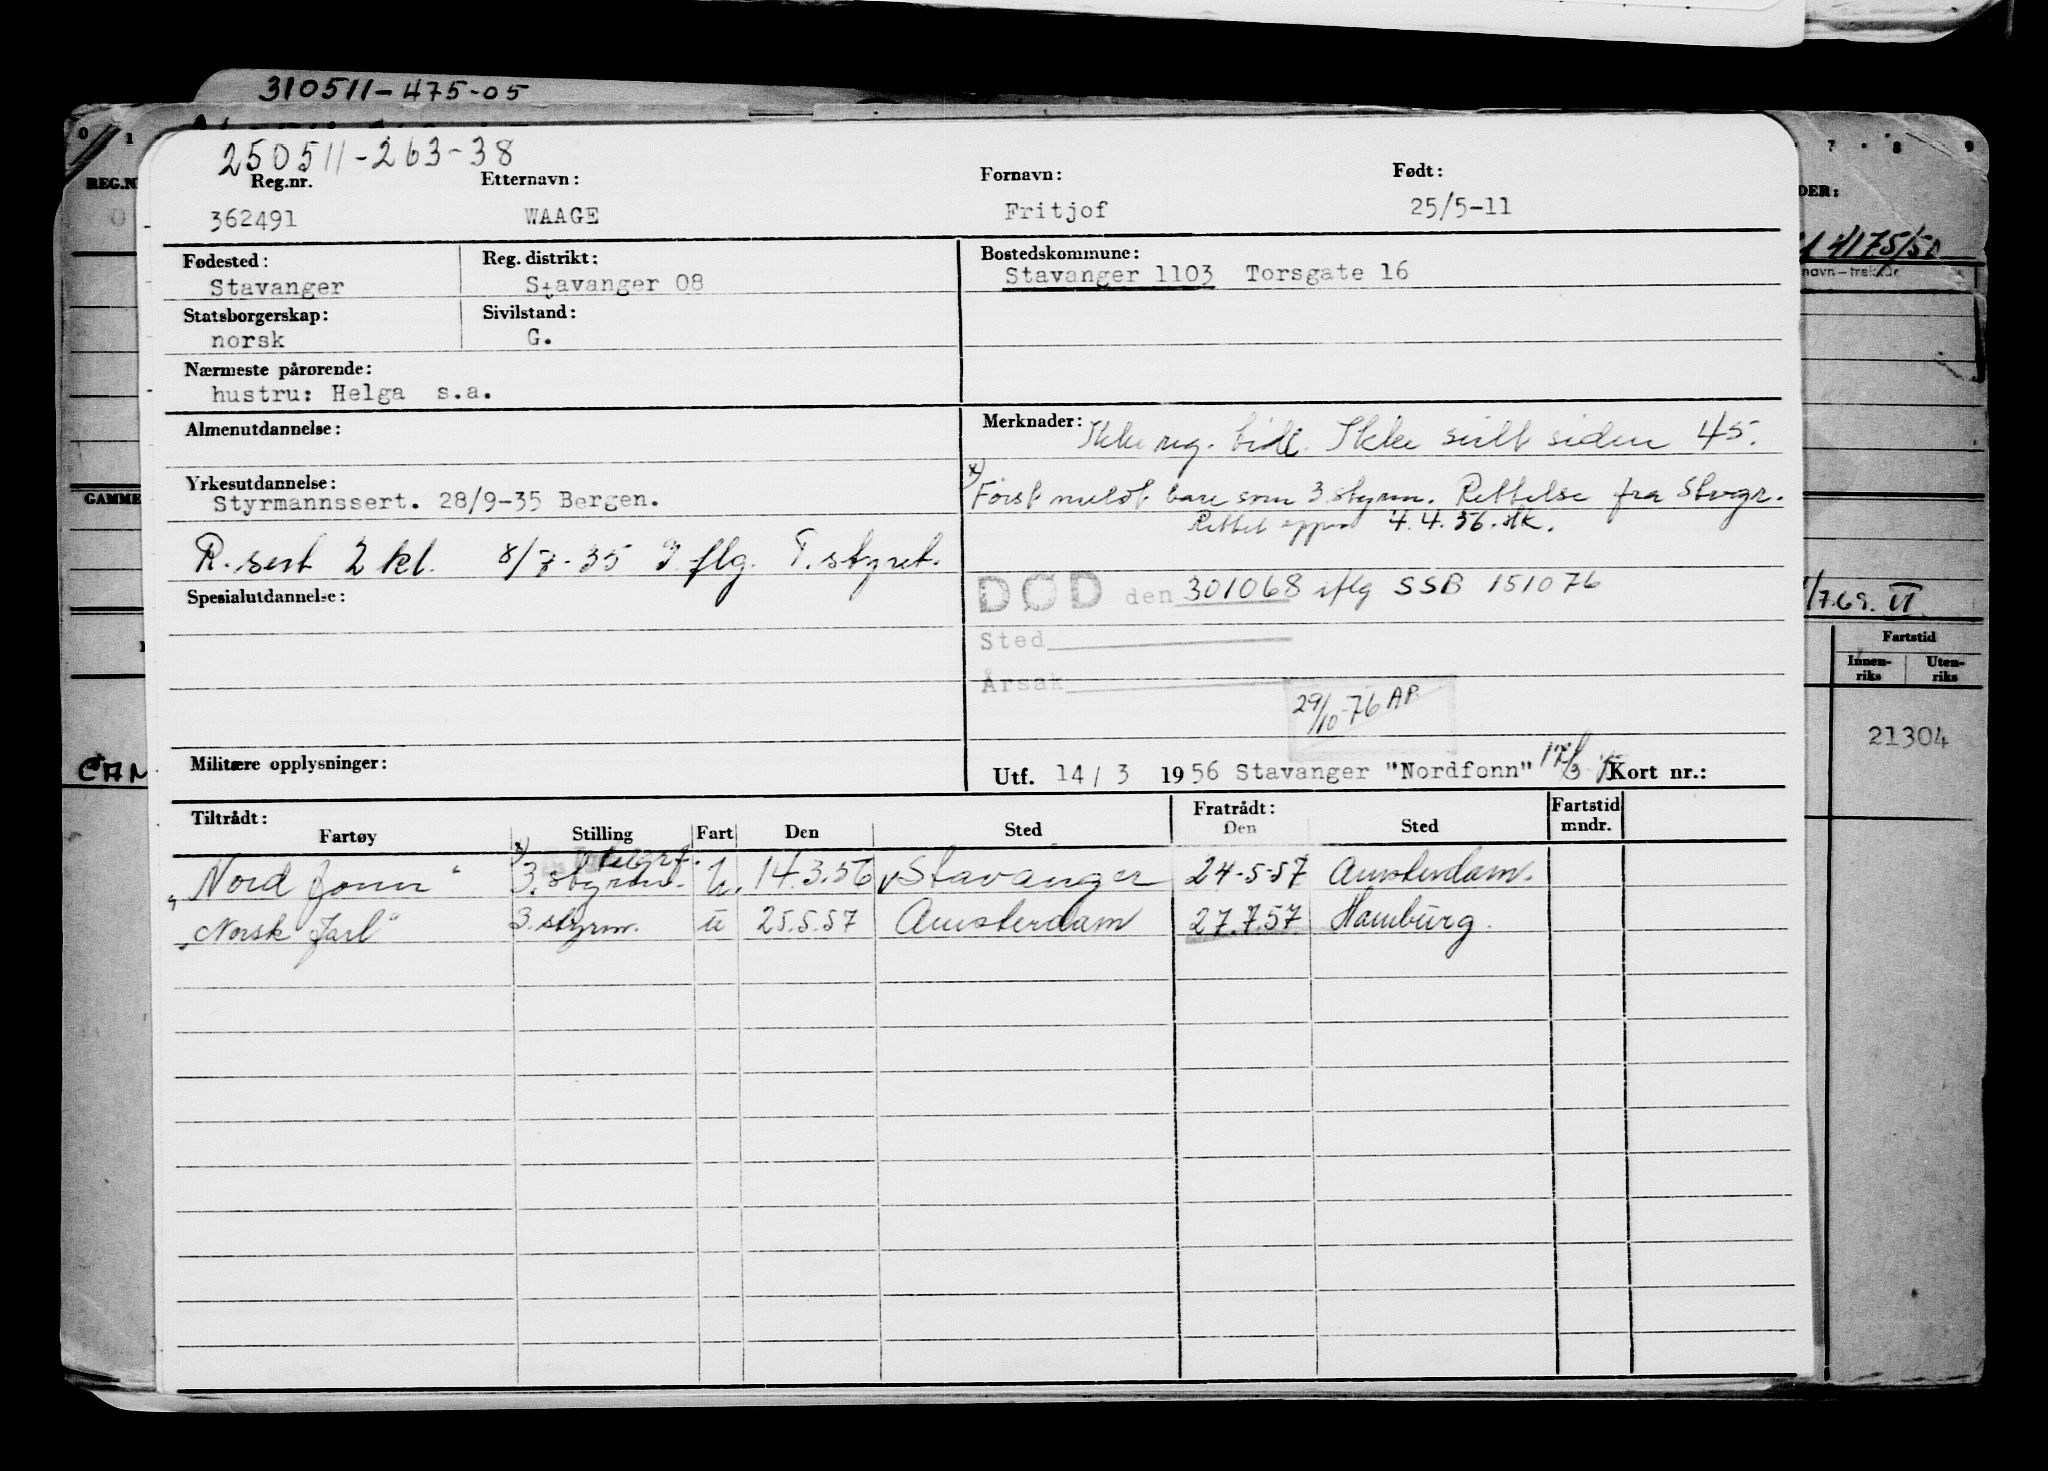 310511-475-05
0 1 7 8 9
250511-263-38
Reg.nr. Etternavn: Fornavn: Født:
362491 WAAGE Fritjof 25/5-11
Fødested: Reg. distrikt: Bostedskommune:
Stavanger Stavanger 08 Stavanger 1103 Torsgate 16
Statsborgerskap: Sivilstand:
norsk G.
Nærmeste pårørende:
hustru: Helga s.a.
Almenutdannelse: Merknader: Ikke reg. tidl. Ikke seilt siden 45.
Yrkesutdannelse: x) Først meldt bare som 3 styrm. Rettelse fra Stvgr.
Styrmannssert. 28/9-35 Bergen. Rettet 4.4.56.
R. sert 2 kl. 8/7-35 I flg. T. styret.
Spesialutdannelse: DØD den 301068 iflg SSB 151076
Sted
Årsak
29/10-76 AP
Militære opplysninger: Utf. 14/3 1956 Stavanger "Nordfonn" Kort nr.:
Tiltrådt: Fratrådt: Fartstid
Fartøy Stilling Fart Den Sted Den Sted mndr.
"Nord fonn" x) 3. styrm. telegrf. U. 14.3.56 Stavanger 24-5-57 Amsterdam.
"Norsk Jarl" 3. styrm. u 25.5.57 Amsterdam 27.7.57 Hamburg.
REG.N
GAMME
DER:
4175/51
navn-trekker
/7.69. II
Fartstid
Innen-riks Uten-riks
21304